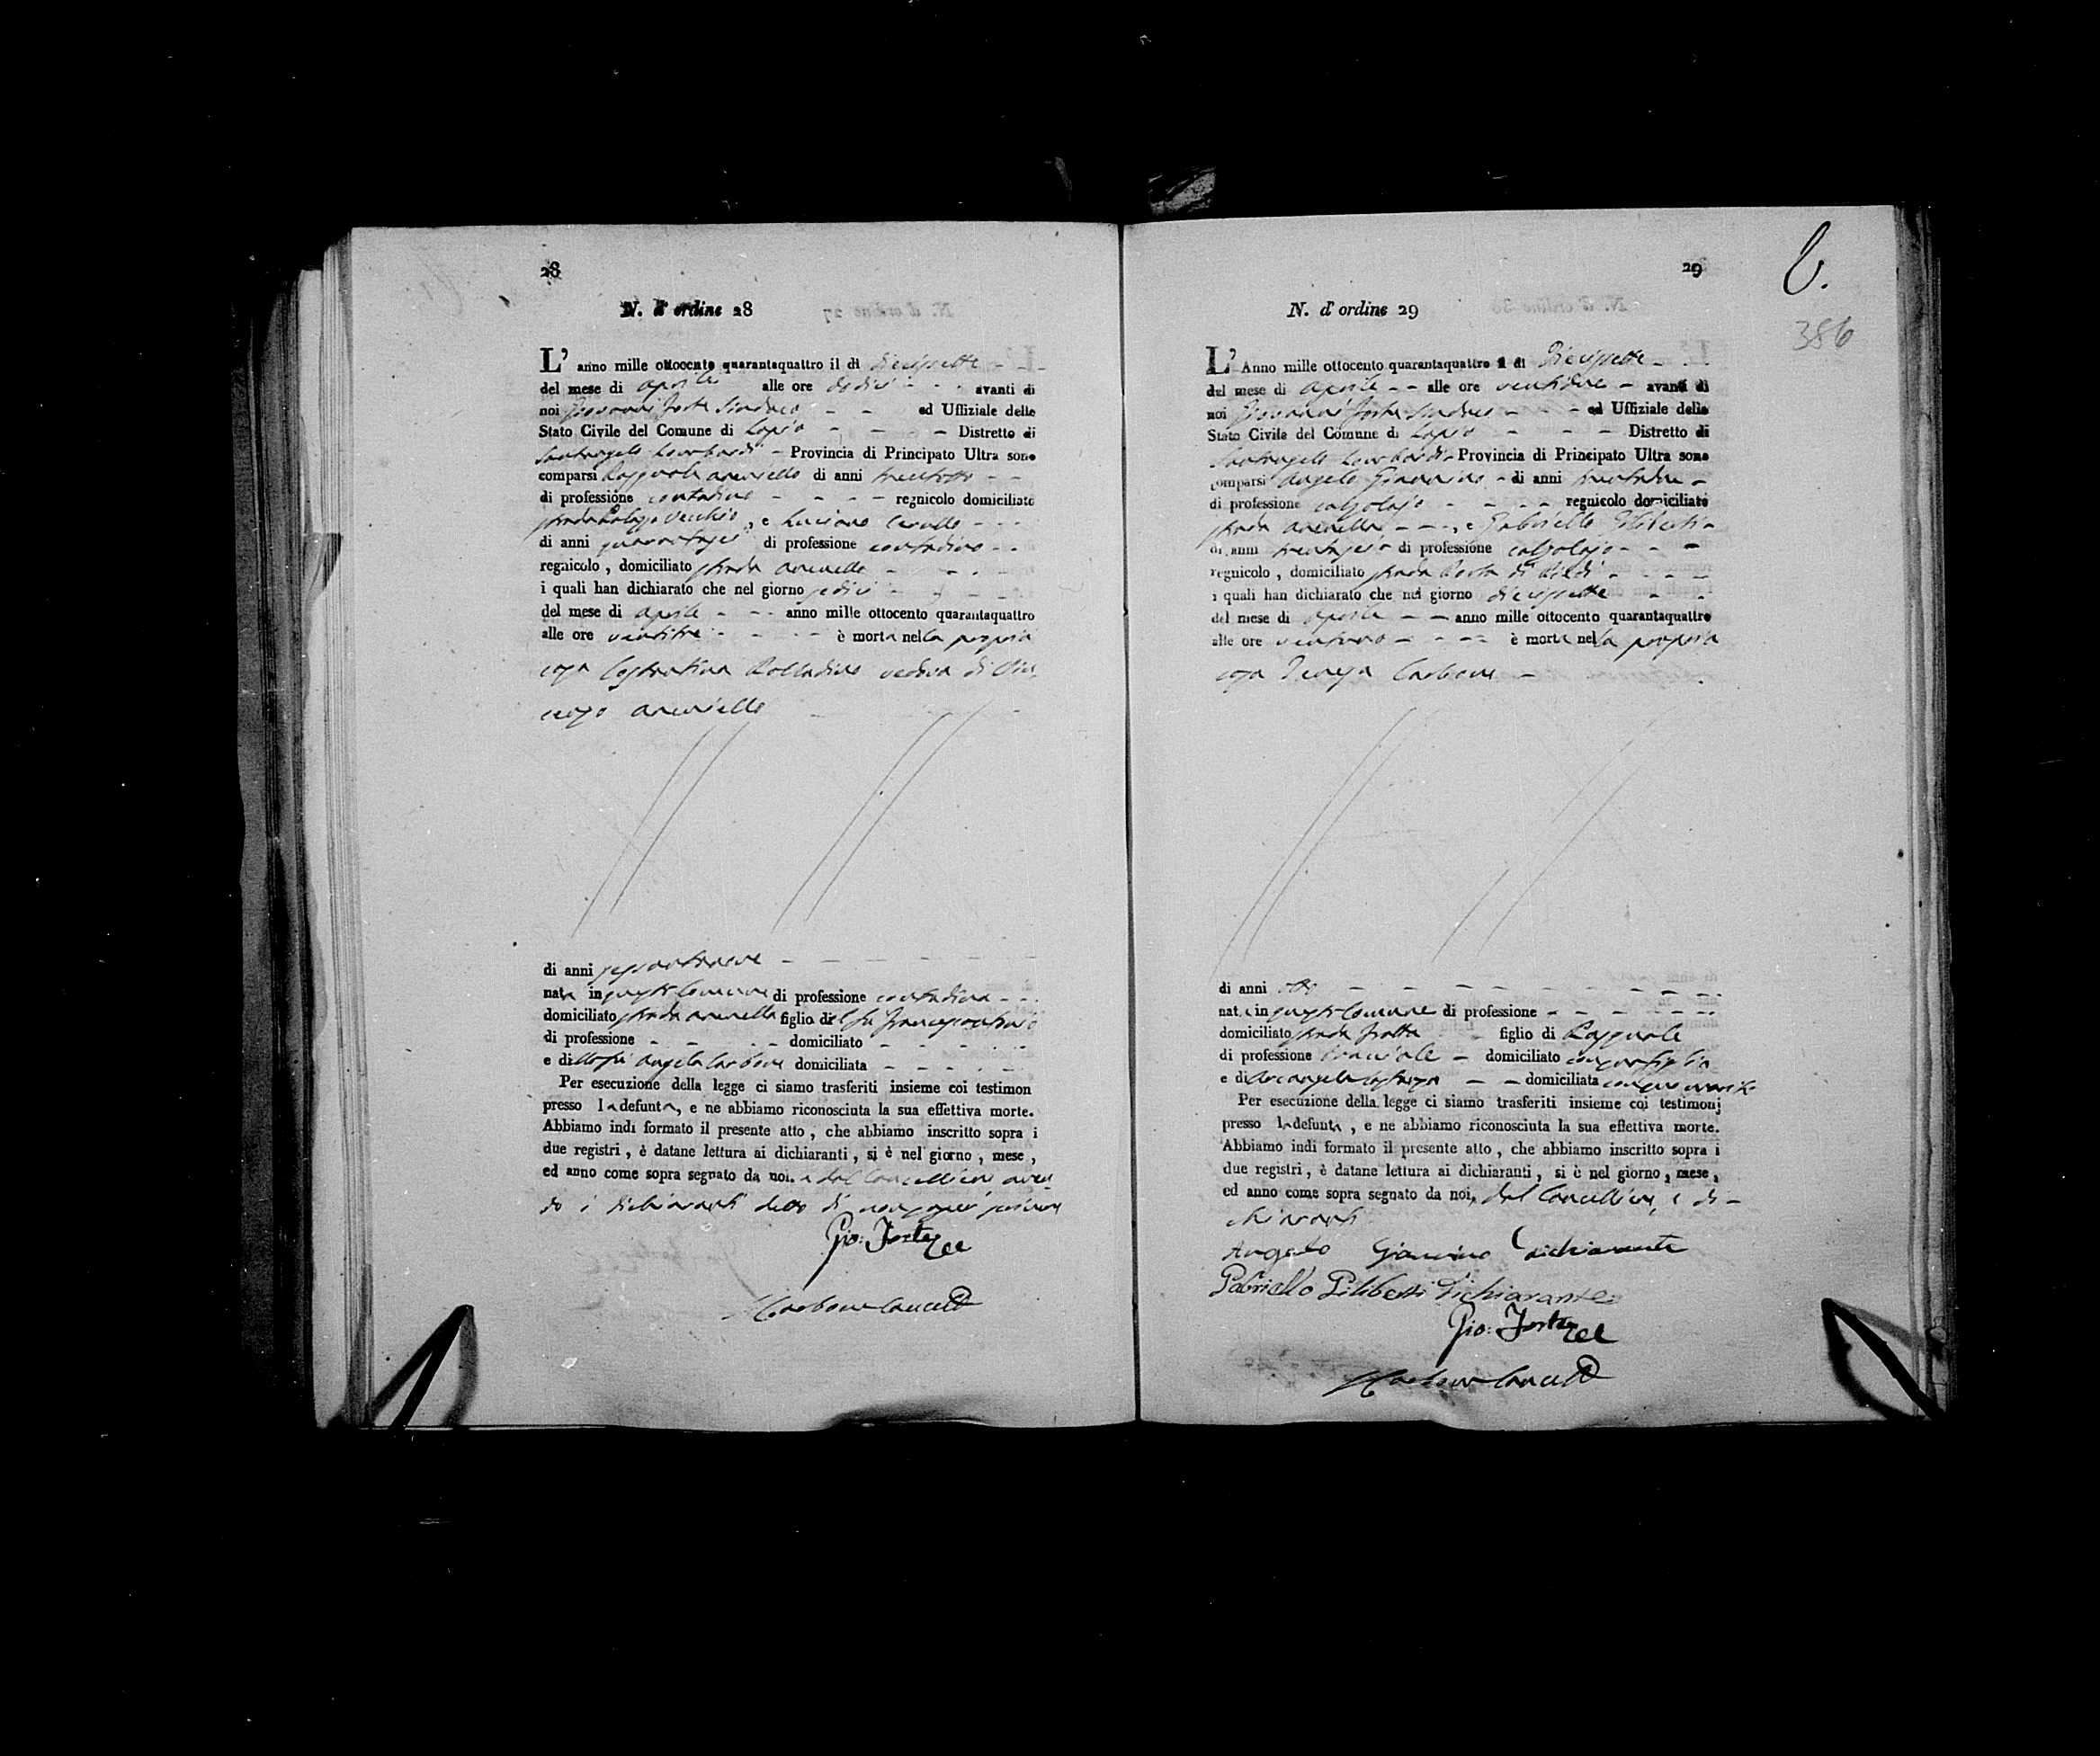 28
N. d' ordine 28
L' anno mille ottocento quarantaquattro il di diecisette
del mese di aprile alle ore dodici avanti di
noi Giovanni Forte Sindaco ed Uffiziale dello
Stato Civile del Comune di Lapio Distretto di
Santangelo Lombardi Provincia di Principato Ultra sono
comparsi Pasquale di anni trentotto
di professione contadino regnicolo domiciliato
strada Palazzo Vecchio, e Luciano
di anni quarantasei di professione contadino
regnicolo, domiciliato strada
i quali han dichiarato che nel giorno sedici
del mese di aprile anno mille ottocento quarantaquattro
alle ore ventitre è morta nella propria
casa Costantina vedova di
di anni sessantanove
nata in questo Comune di professione contadina
domiciliato strada figlio del fu
di professione domiciliato
e della fu Angela Carbone domiciliata
Per esecuzione della legge ci siamo trasferiti insieme coi testimon
presso la defunta, e ne abbiamo riconosciuta la sua effettiva morte.
Abbiamo indi formato il presente atto, che abbiamo inscritto sopra i
due registri, è datane lettura ai dichiaranti, si è nel giorno, mese,
ed anno come sopra segnato da noi, e dal Cancelliere aven
do i dichiaranti detto di non saper scrivere
Gio: Forte
Carbone Canc
29
6.
386
N. d' ordine 29
L' Anno mille ottocento quarantaquattro il di Diecisette
del mese di aprile alle ore ventidue avanti di
noi Giovanni Forte Sindaco ed Uffiziale dello
Stato Civile del Comune di Lapio Distretto di
Santangelo Lombardi Provincia di Principato Ultra sono
comparsi Angelo Giannino di anni
di professione calzolajo regnicolo domiciliato
strada, e Gabriello Ciliberti
di anni trentasei di professione calzolajo
regnicolo, domiciliato strada Porta di
i quali han dichiarato che nel giorno diecisette
del mese di aprile anno mille ottocento quarantaquattro
alle ore ventuno è morta nella propria
casa Teresa Carbone
di anni otto
nata in questo Comune di professione
domiciliato strada Fratta figlio di Pasquale
di professione bracciale domiciliato con sua figlia
e di Arcangela domiciliata con suo marito
Per esecuzione della legge ci siamo trasferiti insieme coi testimonj
presso la defunta, e ne abbiamo riconosciuta la sua effettiva morte.
Abbiamo indi formato il presente atto, che abbiamo inscritto sopra i
due registri, è datane lettura ai dichiaranti, si è nel giorno, mese,
ed anno come sopra segnato da noi, dal Cancelliere, e di
chiaranti
Angelo Giannino dichiarante
Gabriello Ciliberti dichiarante
Gio: Forte
Carbone Canc